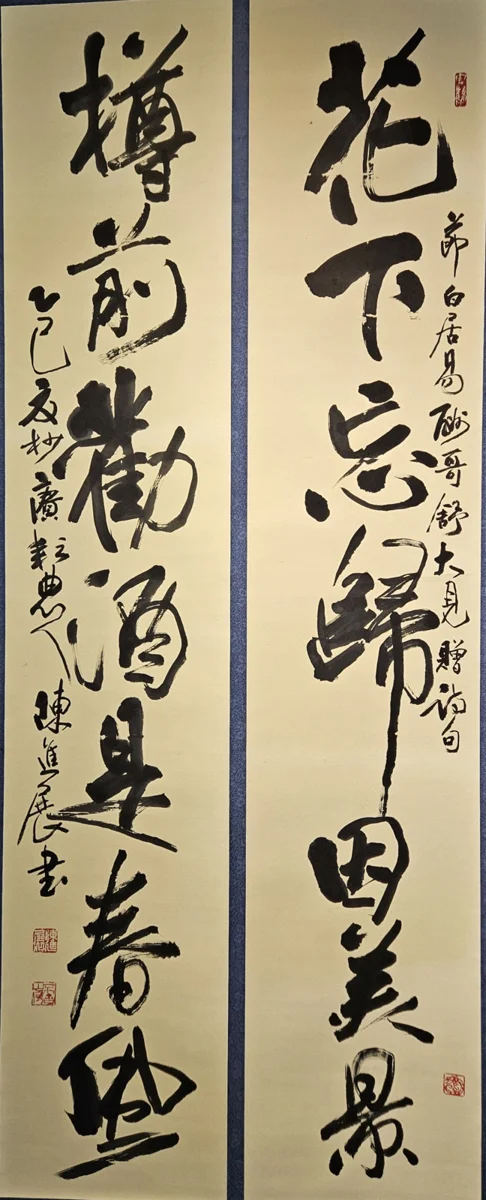 花下忘歸因美景
節白居易酬哥舒大見贈詩句
樽前勸酒是春風
乙巳夏杪廣 陳進展書